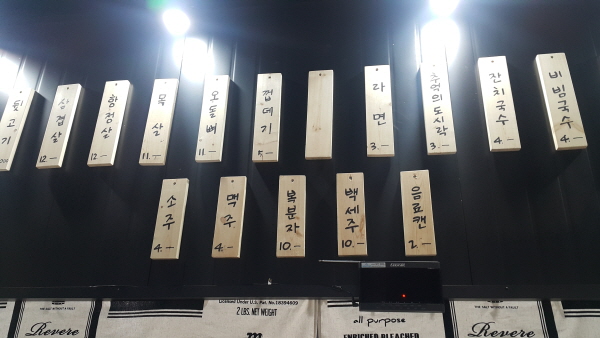 뒷고기
삼겹살
12.-
항정살
12.-
목살
11.-
오돌뼈
11.-
껍데기
5.-
라면
3.-
추억의도시락
3.-
잔치국수
4.-
비빔국수
4.-
소주
4.-
맥주
4.-
복분자
10.-
백세주
10.-
음료캔
2.-
Revere
Licensed Under U.S. Pat. No.18394609
2 LBS. NET WEIGHT
all purpose
ENRICHED BLEACHED
THE SALT WITHOUT A FAULT
Revere